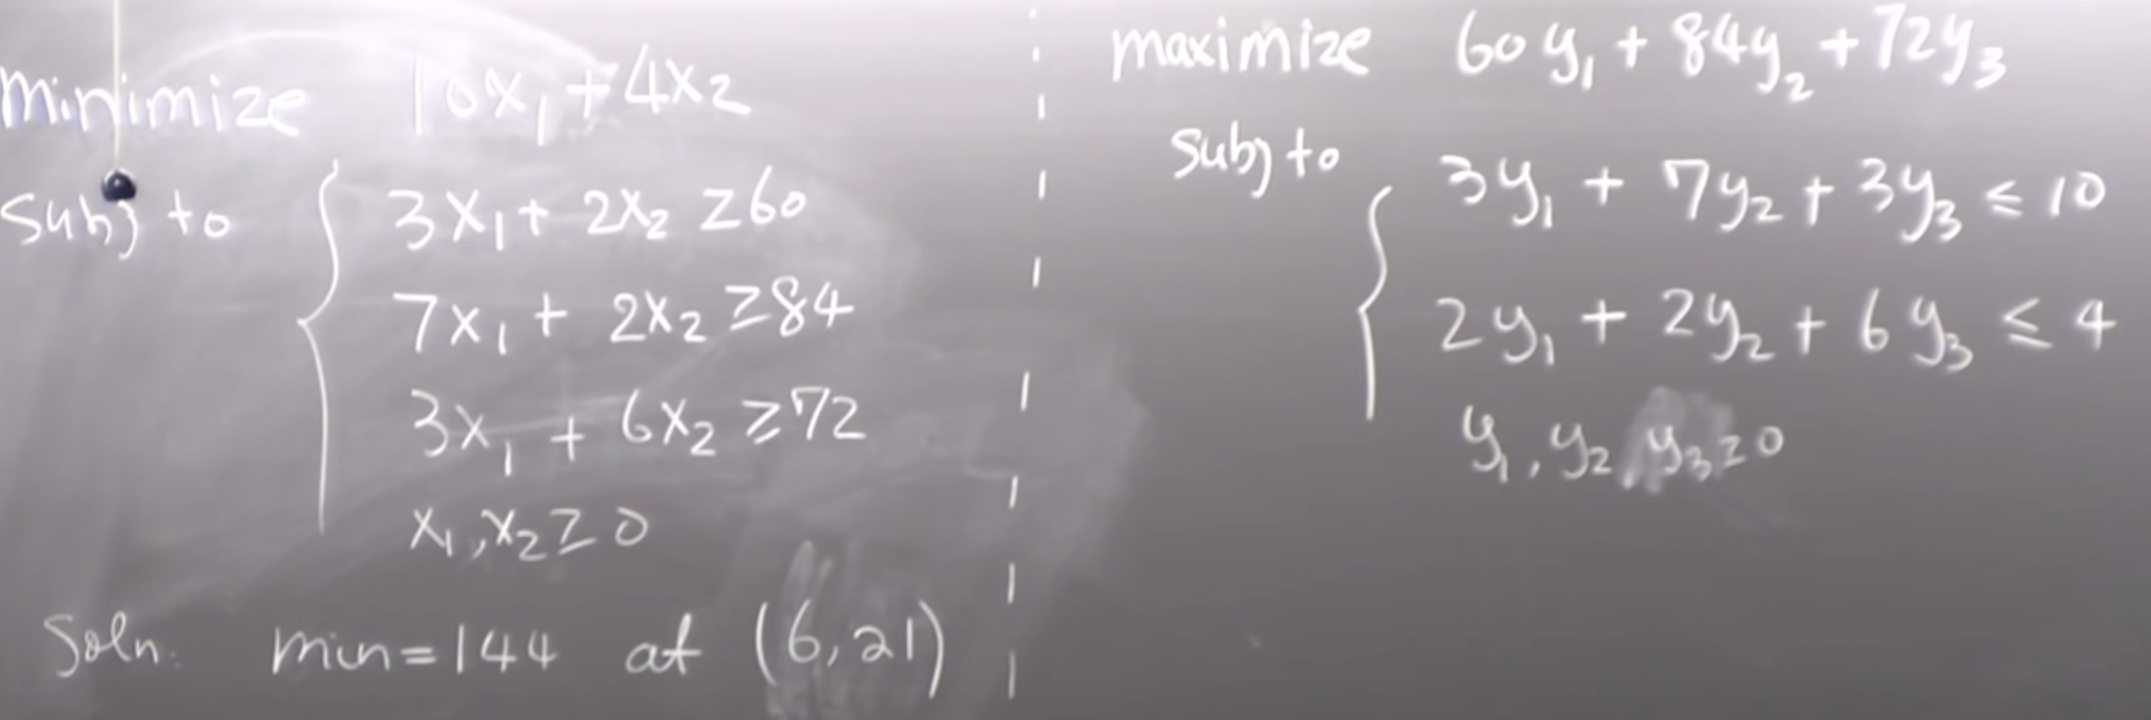 minimize 10x₁ + 4x₂
subj to 3x₁ + 2x₂ ≥ 60
7x₁ + 2x₂ ≥ 84
3x₁ + 6x₂ ≥ 72
x₁, x₂ ≥ 0
Soln: min = 144 at (6, 21)
maximize 60y₁ + 84y₂ + 72y₃
subj to
3y₁ + 7y₂ + 3y₃ ≤ 10
2y₁ + 2y₂ + 6y₃ ≤ 4
y₁, y₂, y₃ ≥ 0